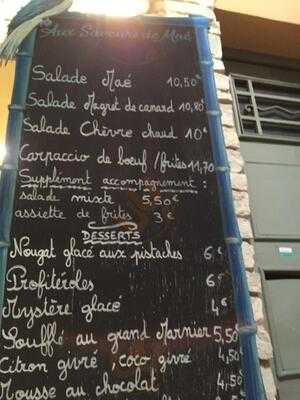 Aux Saveurs de Maé
Salade Maé 10,50€
Salade Magret de canard 10,80€
Salade Chèvre chaud 10€
Carpaccio de boeuf / frites 11,70
Supplément accompagnement :
salade mixte 5,50€
assiette de frites 3€
DESSERTS
Nougat glacé aux pistaches 6€
Profitéroles 6€
Mystère glacé 4€
Soufflé au grand Marnier 5,50
Citron givré, coco givré 4,50
Mousse au chocolat 4,50